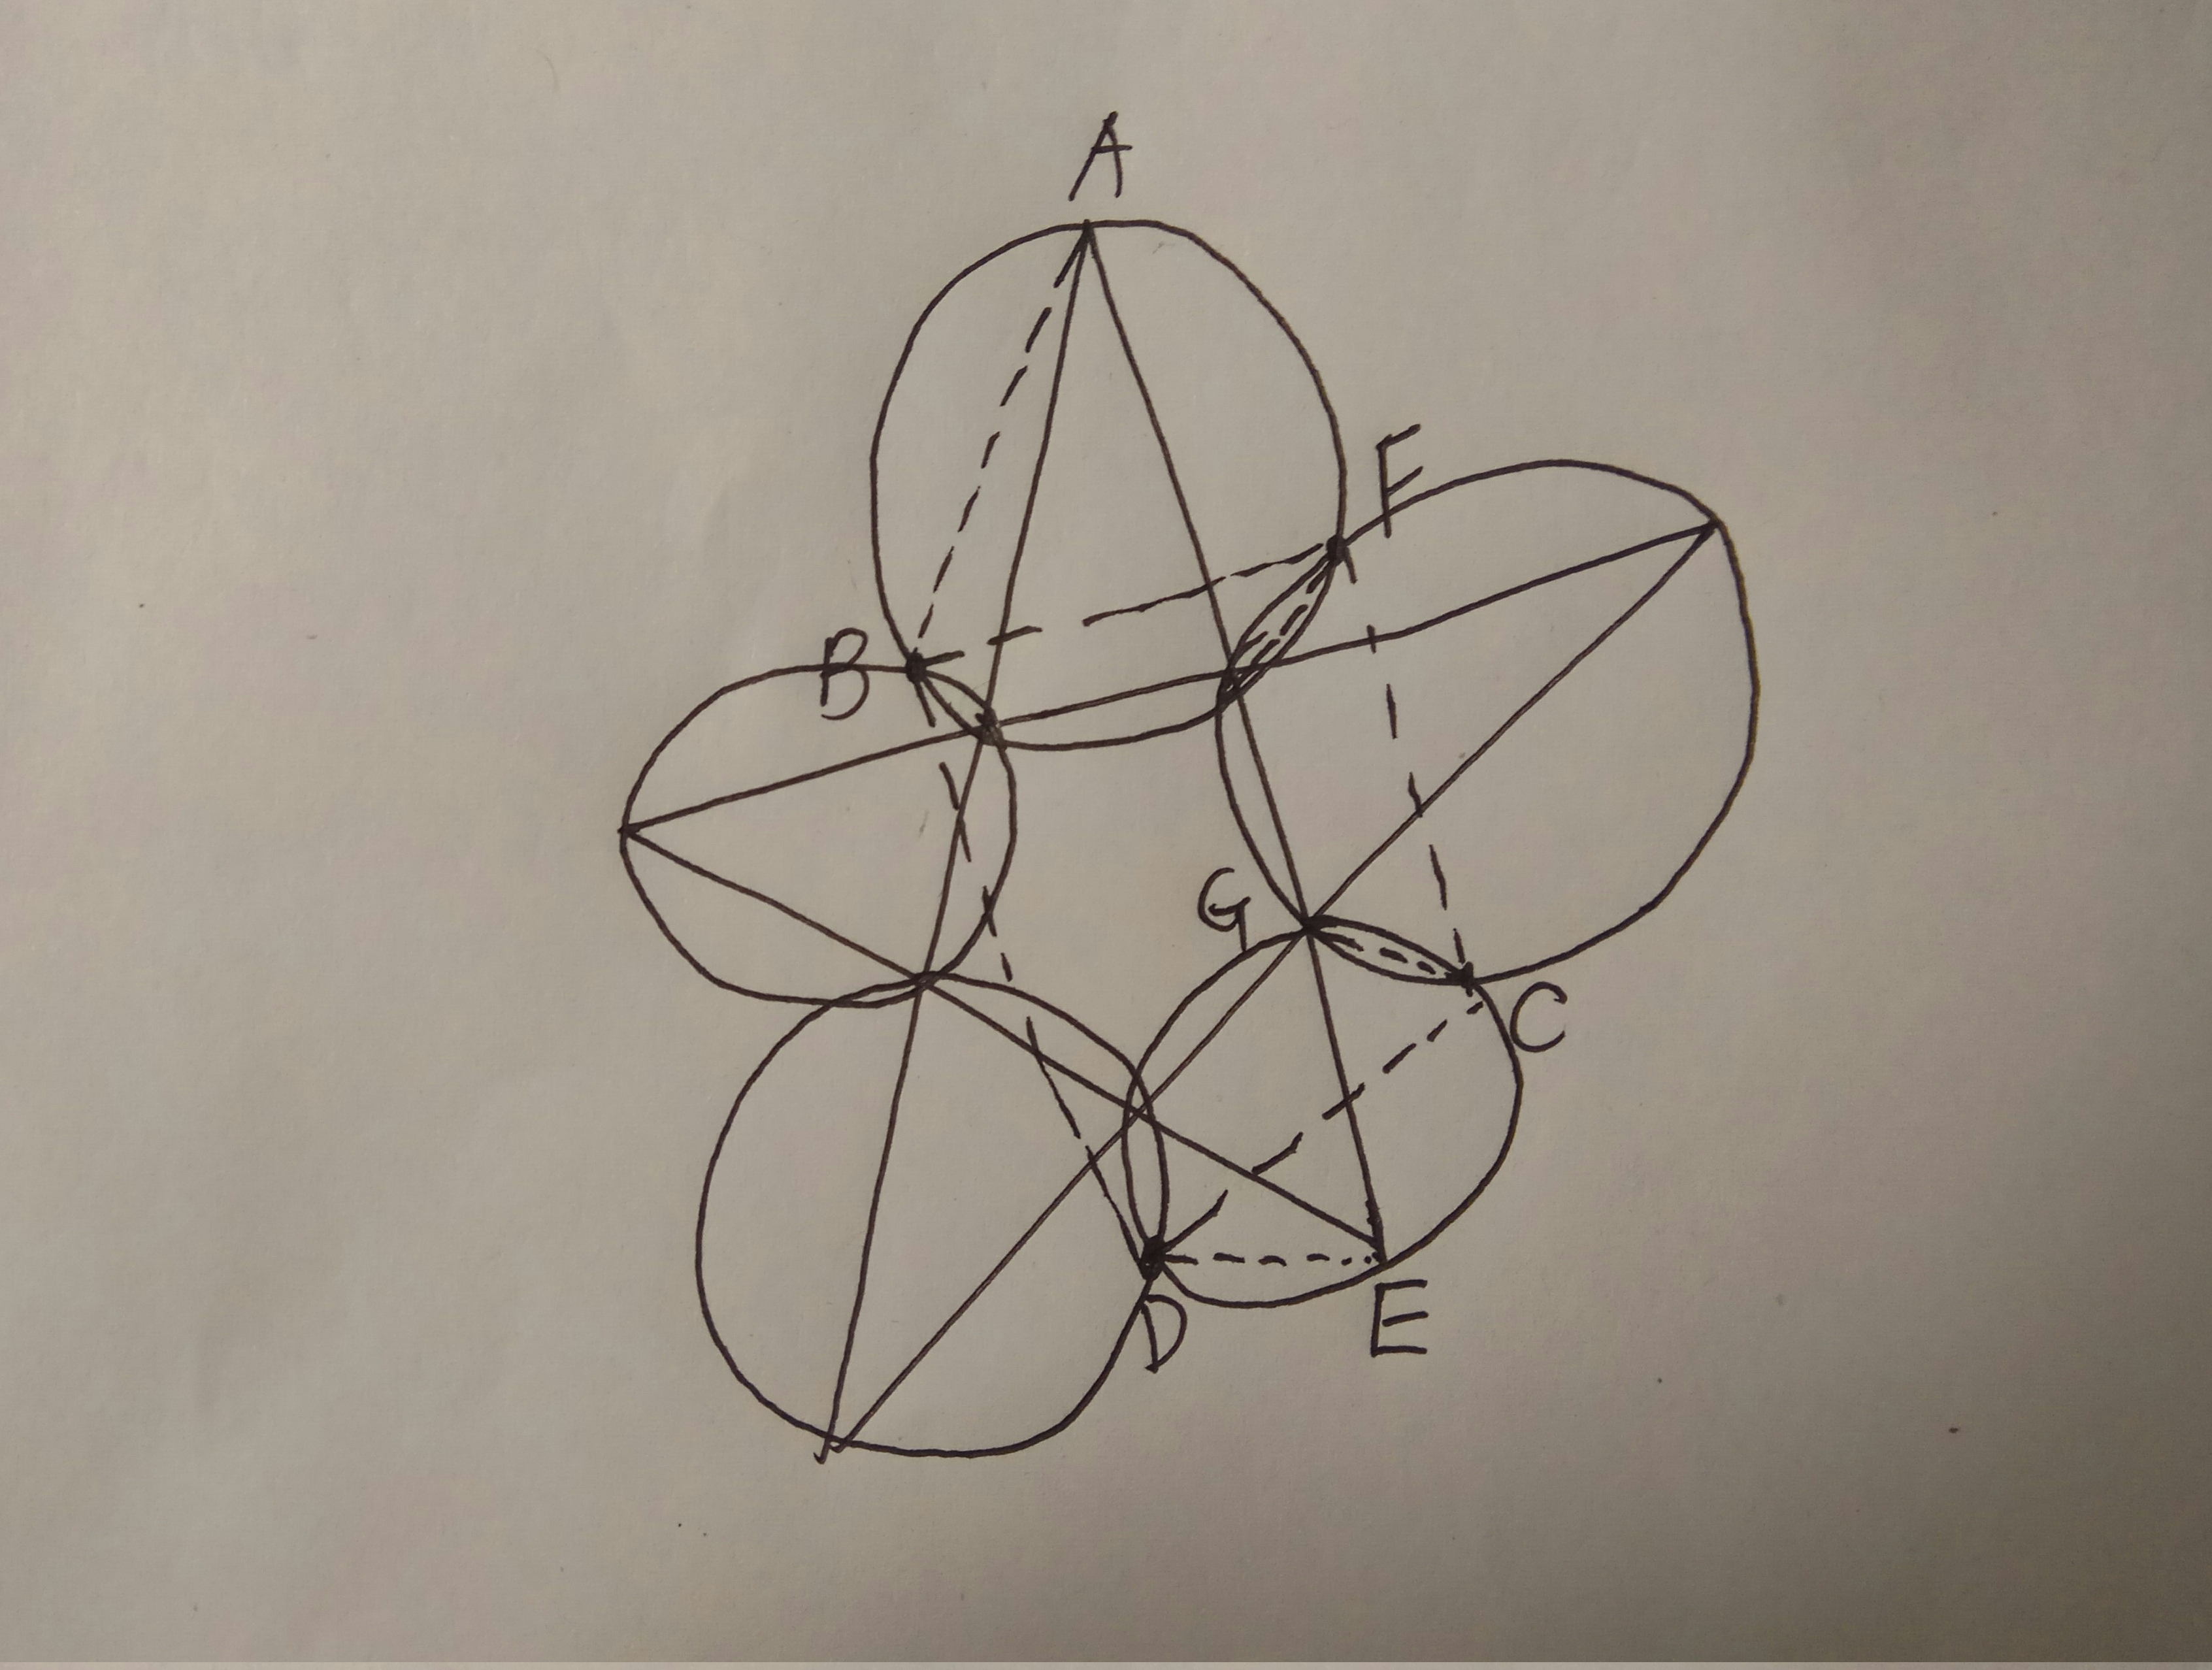 A
F
B
G
C
D
E